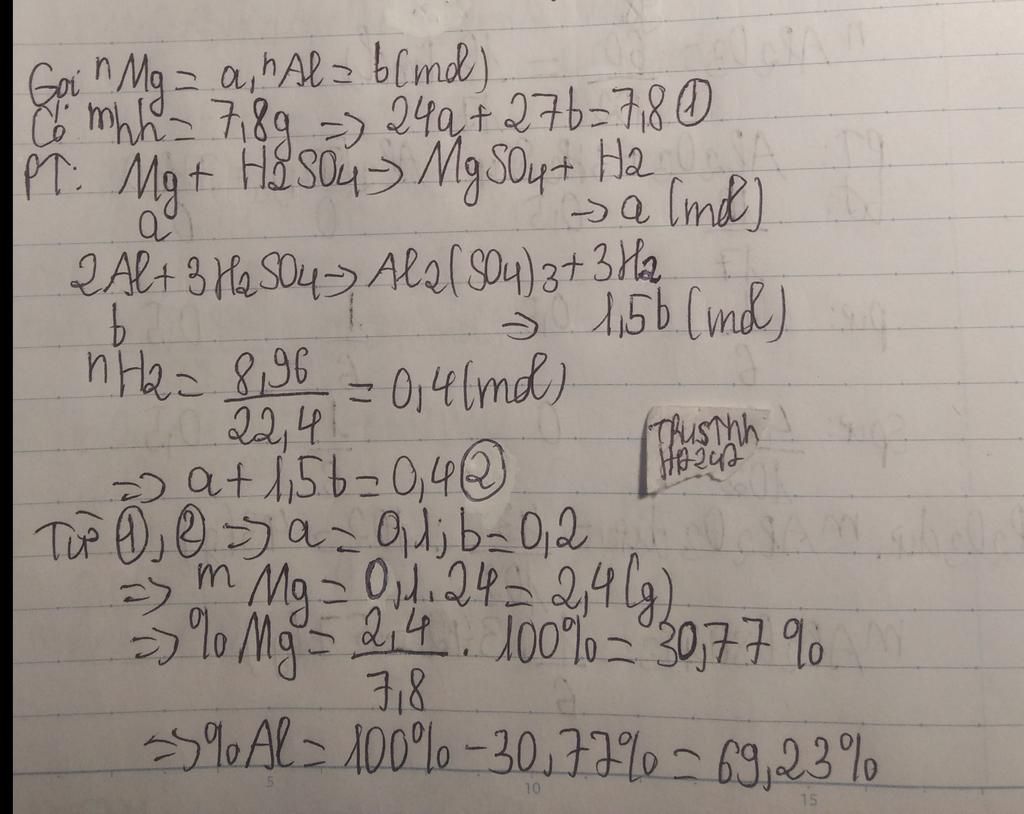 Gọi nMg = a, nAl = b (mol)
Có mhh = 7,8g => 24a + 27b = 7,8 ①
PT: Mg + H2SO4 -> MgSO4 + H2
a -> a (mol)
2Al + 3H2SO4 -> Al2(SO4)3 + 3H2
b => 1,5b (mol)
nH2 = 8,96 / 22,4 = 0,4 (mol)
=> a + 1,5b = 0,4 ②
Từ ①, ② => a = 0,1; b = 0,2
=> mMg = 0,1.24 = 2,4 (g)
=> %Mg = 2,4 / 7,8 . 100% = 30,77%
=> %Al = 100% - 30,77% = 69,23%
5 10 15